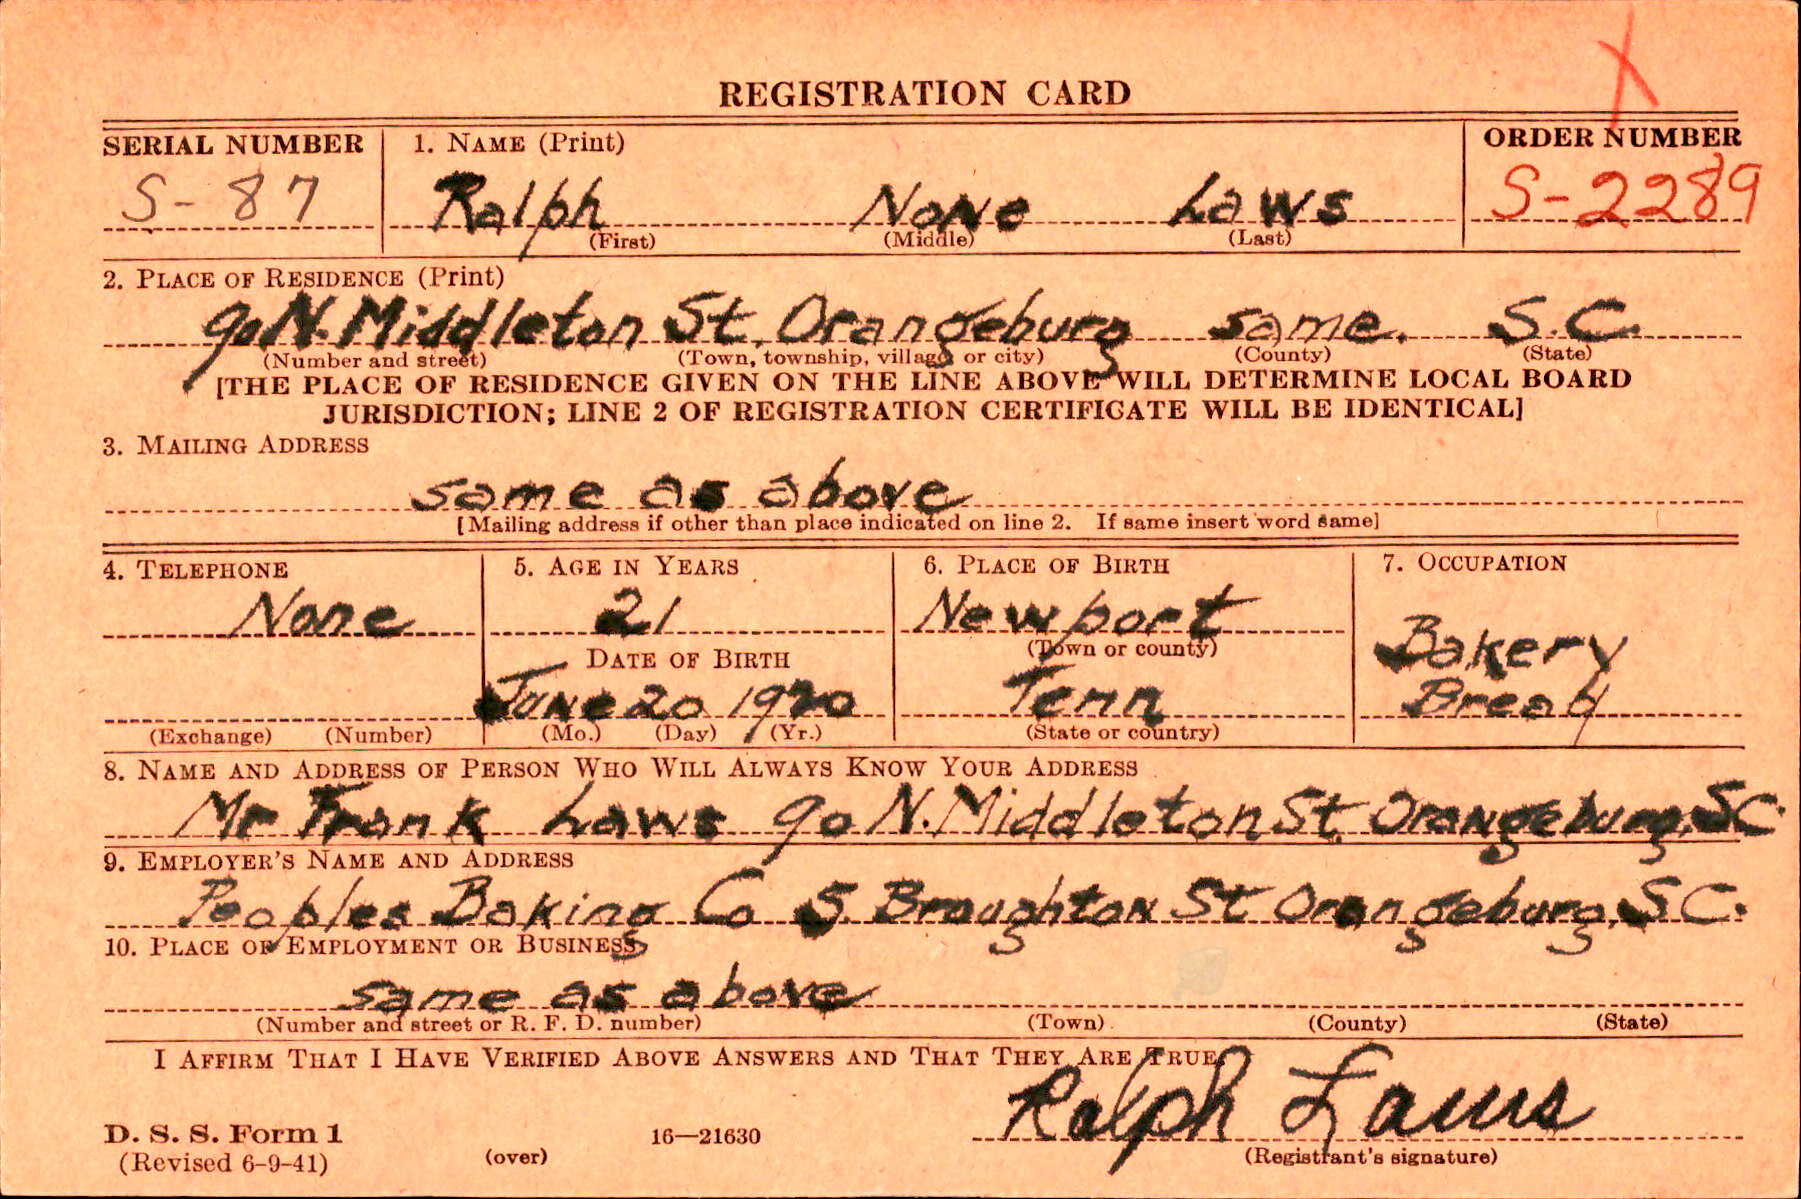 REGISTRATION CARD
SERIAL NUMBER 1. NAME (Print) ORDER NUMBER
S-87 Ralph None Laws S-2289
(First) (Middle) (Last)
2. PLACE OF RESIDENCE (Print)
90 N. Middleton St. Orangeburg same. S.C.
(Number and street) (Town, township, village or city) (County) (State)
[THE PLACE OF RESIDENCE GIVEN ON THE LINE ABOVE WILL DETERMINE LOCAL BOARD
JURISDICTION; LINE 2 OF REGISTRATION CERTIFICATE WILL BE IDENTICAL]
3. MAILING ADDRESS
same as above
[Mailing address if other than place indicated on line 2. If same insert word same]
4. TELEPHONE 5. AGE IN YEARS 6. PLACE OF BIRTH 7. OCCUPATION
None 21 Newport Bakery
(Town or county)
DATE OF BIRTH
June 20 1920 Tenn Bread
(Exchange) (Number) (Mo.) (Day) (Yr.) (State or country)
8. NAME AND ADDRESS OF PERSON WHO WILL ALWAYS KNOW YOUR ADDRESS
Mr Frank Laws 90 N. Middleton St. Orangeburg, S.C.
9. EMPLOYER'S NAME AND ADDRESS
Peoples Baking Co S. Broughton St Orangeburg, S.C.
10. PLACE OF EMPLOYMENT OR BUSINESS
same as above
(Number and street or R. F. D. number) (Town) (County) (State)
I AFFIRM THAT I HAVE VERIFIED ABOVE ANSWERS AND THAT THEY ARE TRUE.
Ralph Laws
D. S. S. Form 1
(Revised 6-9-41) (over) 16—21630 (Registrant's signature)